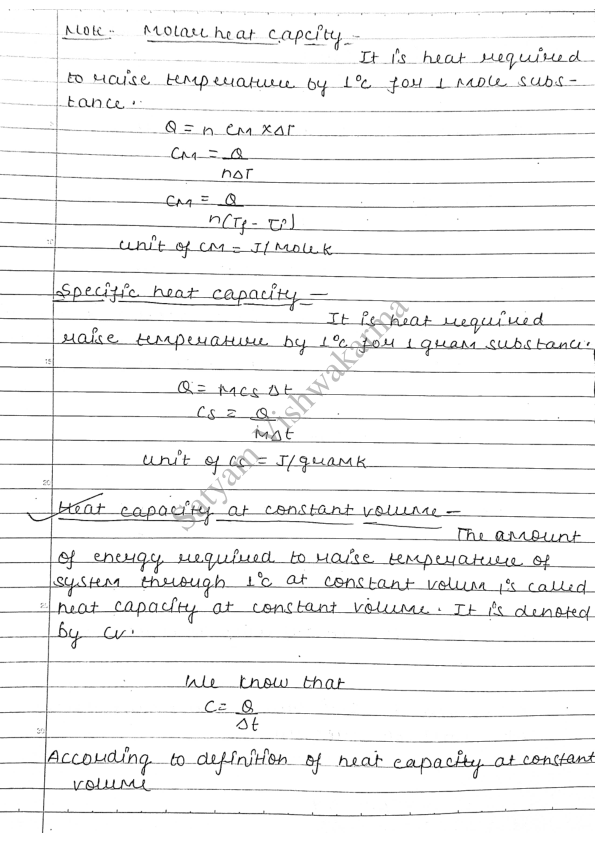 Note - Molar heat capcity -
It is heat required
to raise temperature by 1°c for 1 Mole subs-
tance.
Q = n CM x ΔT
CM = Q
nΔT
CM = Q
n(Tf - Ti)
unit of CM = J/Mole k
Specific heat capacity -
It is heat required
raise temperature by 1°c for 1 gram substance.
15
Q = MCs Δt
Cs = Q
MΔt
unit of cs = J/gram k
20
Heat capacity at constant volume -
The amount
of energy required to raise temperature of
system through 1°c at constant volum is called
25
heat capacity at constant volume. It is denoted
by cv.
We know that
C = Q
Δt
30
According to definition of heat capacity at constant
volume
Satyam Vishwakarma